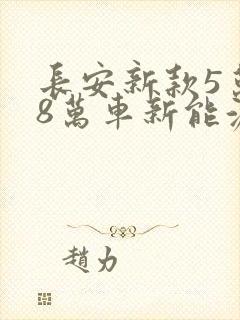 長安新款5
8萬車新能
趙力